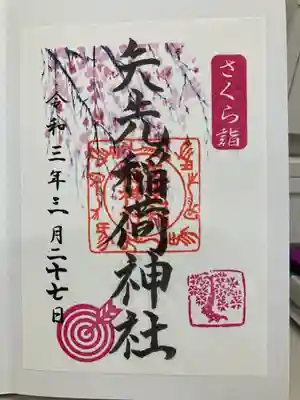 さくら詣
矢先稲荷神社
令和三年三月二十七日